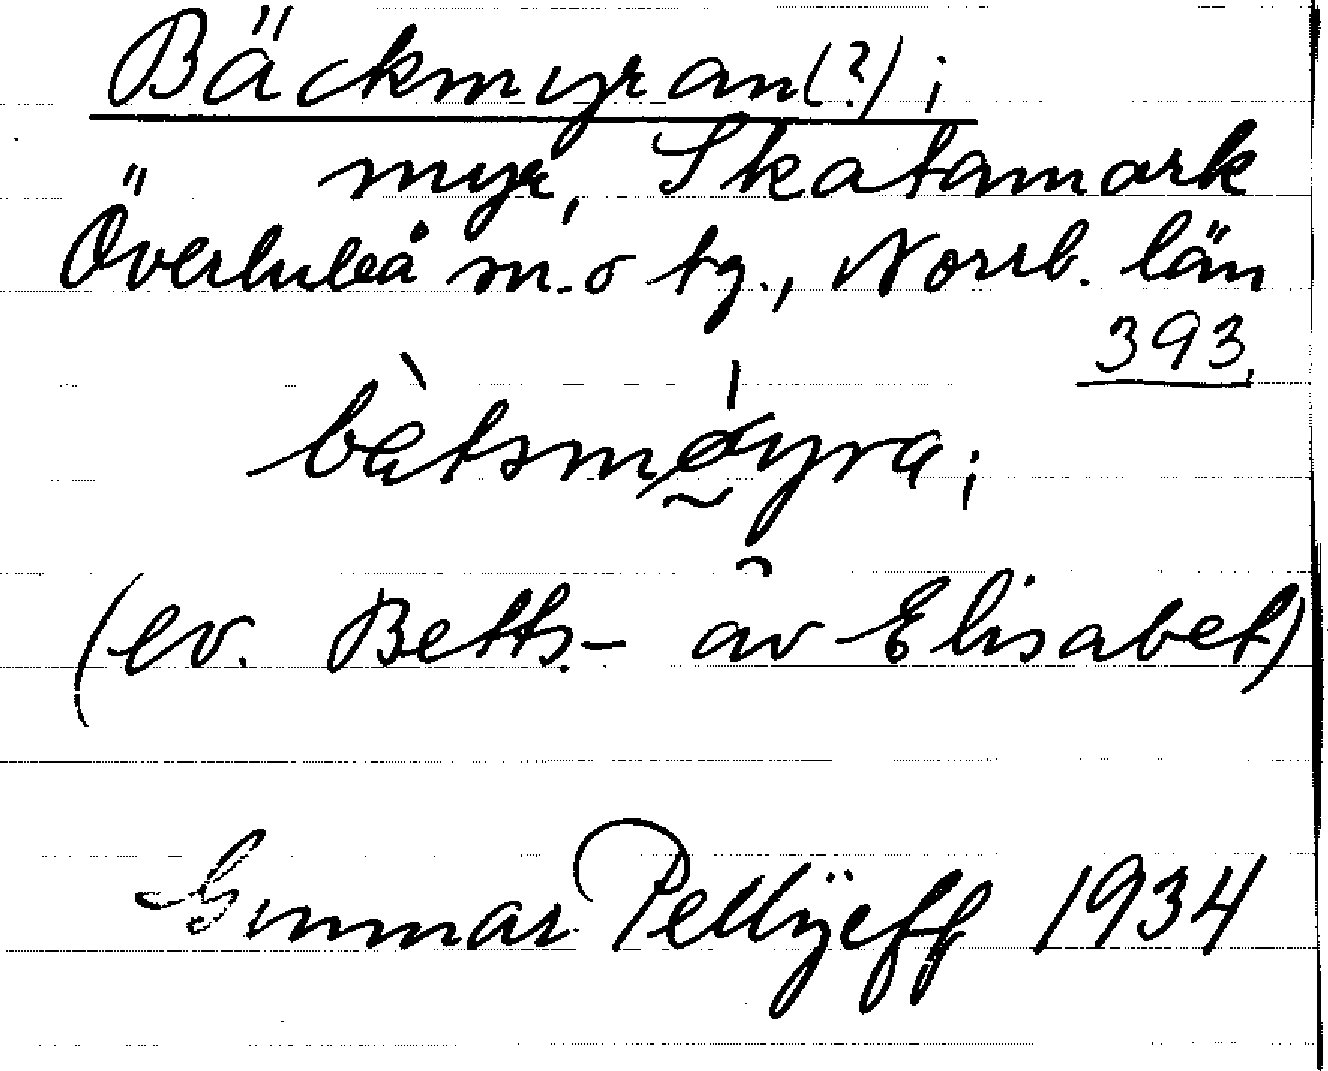 Bäckmyran(?);
myr, Skatamark
Överluleå sn. o tg., Norrb. län
393.
bètsmøyra;
(ev. Betts.- av Elisabet)
Gunnar Pellijeff 1934